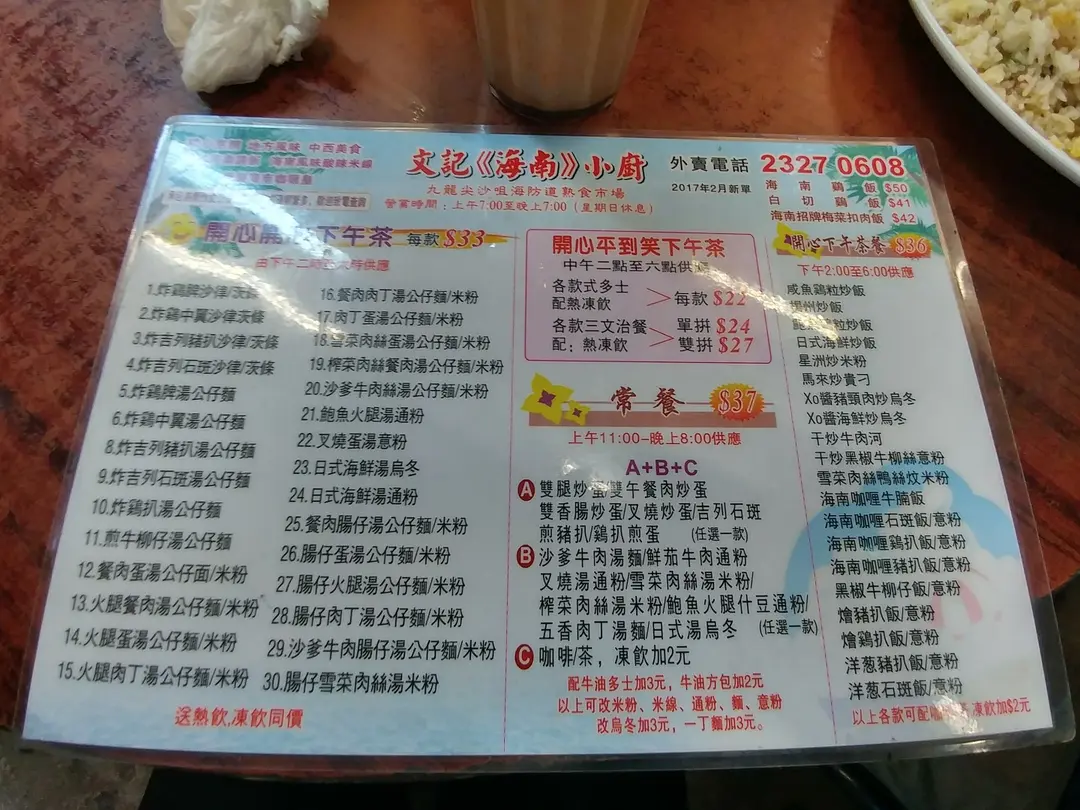 地方風味 中西美食
海南風味酸辣米線
文記《海南》小廚
九龍尖沙咀海防道熟食市場
營業時間：上午7:00至晚上7:00（星期日休息）
外賣電話 2327 0608
2017年2月新單
海南鷄飯 $50
白切鷄飯 $41
海南招牌梅菜扣肉飯 $42
開心 下午茶 每款 $33
由下午二時至 時供應
1.炸鷄脾沙律/茨條
2.炸鷄中翼沙律茨條
3.炸吉列豬扒沙律/茨條
4.炸吉列石斑沙律/茨條
5.炸鷄脾湯公仔麵
6.炸鷄中翼湯公仔麵
8.炸吉列豬扒湯公仔麵
9.炸吉列石斑湯公仔麵
10.炸鷄扒湯公仔麵
11.煎牛柳仔湯公仔麵
12.餐肉蛋湯公仔面/米粉
13.火腿餐肉湯公仔麵/米粉
14.火腿蛋湯公仔麵/米粉
15.火腿肉丁湯公仔麵/米粉
16.餐肉肉丁湯公仔麵/米粉
17.肉丁蛋湯公仔麵/米粉
18.雪菜肉絲蛋湯公仔麵/米粉
19.榨菜肉絲餐肉湯公仔麵/米粉
20.沙爹牛肉絲湯公仔麵/米粉
21.鮑魚火腿湯通粉
22.叉燒蛋湯意粉
23.日式海鮮湯烏冬
24.日式海鮮湯通粉
25.餐肉腸仔湯公仔麵/米粉
26.腸仔蛋湯公仔麵/米粉
27.腸仔火腿湯公仔麵/米粉
28.腸仔肉丁湯公仔麵/米粉
29.沙爹牛肉腸仔湯公仔麵/米粉
30.腸仔雪菜肉絲湯米粉
送熱飲,凍飲同價
開心平到笑下午茶
中午二點至六點供應
各款式多士
配熱凍飲
每款 $22
各款三文治餐
配：熱凍飲
單拼 $24
雙拼 $27
常餐 $37
上午11:00-晚上8:00供應
A+B+C
A 雙腿炒蛋/雙午餐肉炒蛋
雙香腸炒蛋/叉燒炒蛋/吉列石斑
煎豬扒/鷄扒煎蛋 (任選一款)
B 沙爹牛肉湯麵/鮮茄牛肉通粉
叉燒湯通粉/雪菜肉絲湯米粉/
榨菜肉絲湯米粉/鮑魚火腿什豆通粉/
五香肉丁湯麵/日式湯烏冬 (任選一款)
C 咖啡/茶，凍飲加2元
配牛油多士加3元，牛油方包加2元
以上可改米粉、米線、通粉、麵、意粉
改烏冬加3元，一丁麵加3元。
開心下午茶餐 $36
下午2:00至6:00供應
咸魚鷄粒炒飯
揚州炒飯
鷄粒炒飯
日式海鮮炒飯
星洲炒米粉
馬來炒貴刁
Xo醬豬頸肉炒烏冬
Xo醬海鮮炒烏冬
干炒牛肉河
干炒黑椒牛柳絲意粉
雪菜肉絲鴨絲炆米粉
海南咖喱牛腩飯
海南咖喱石斑飯/意粉
海南咖喱鷄扒飯/意粉
海南咖喱豬扒飯/意粉
黑椒牛柳仔飯/意粉
燴豬扒飯/意粉
燴鷄扒飯/意粉
洋葱豬扒飯/意粉
洋葱石斑飯/意粉
以上各款可配咖 凍飲加$2元